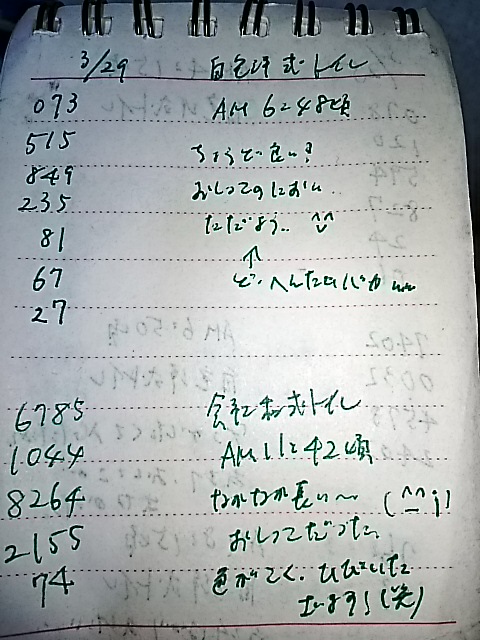 3/29 自宅洋式トイレ
073 AM 6:48頃
515
849 ちょうど良い?
235 おしっこのにおい..
81 ただよう.. ^^
↑
67 ど・へんたいバカ
27
6785 会社和式トイレ
1044 AM 11:42頃
8264 なかなか長い〜 (^^;)
2155 おしっこだった
74 色がこく、ひびいた
(笑)